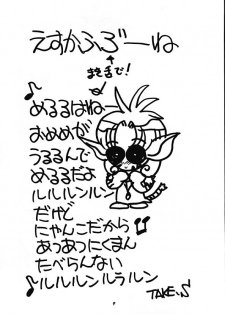 えすかふろーね
↑
まき舌で!
♪めるるはね
おめめが
うるるんで
めるるだよ
ルルルンルン
だけど
にゃんこだから
あつあつにくまん
たべらんない
♪ルルルンルラルン
TAKE.S